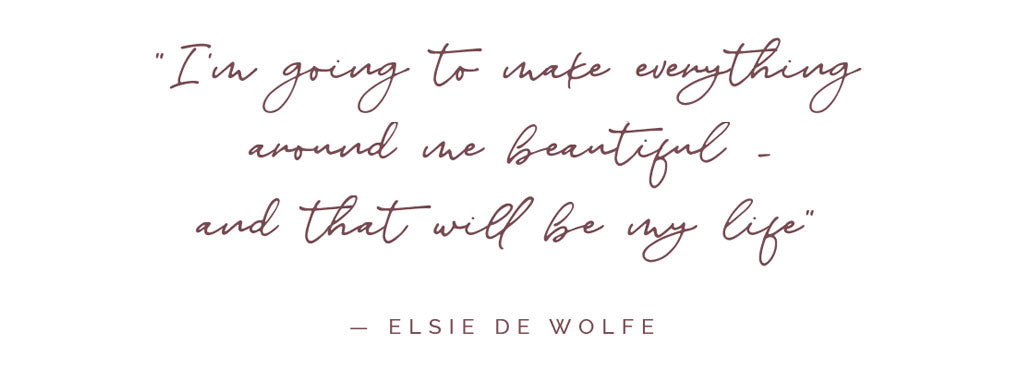 "I'm going to make everything
around me beautiful -
and that will be my life"
— ELSIE DE WOLFE